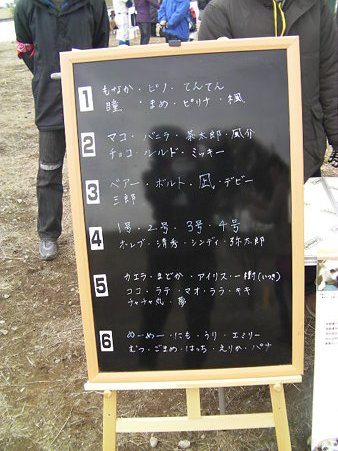 1
もなか・ピノ・てんてん
瞳・まめ・ピリナ・楓
2
マコ・バニラ・茶太郎・風介
チョコ・ルルド・ミッキー
3
ベアー・ボルト・凪・デビー
三郎
4
1号・2号・3号・4号
ホレブ・清秀・シンディ・弥太郎
5
カエラ・まどか・アイリス・一樹(いつき)
ココ・ラテ・マオ・ララ・キキ
チャチャ丸・夢
6
ぬーぬー・にも・うり・エミリー
むつ・ごまめ・はっち・えりか・パナ